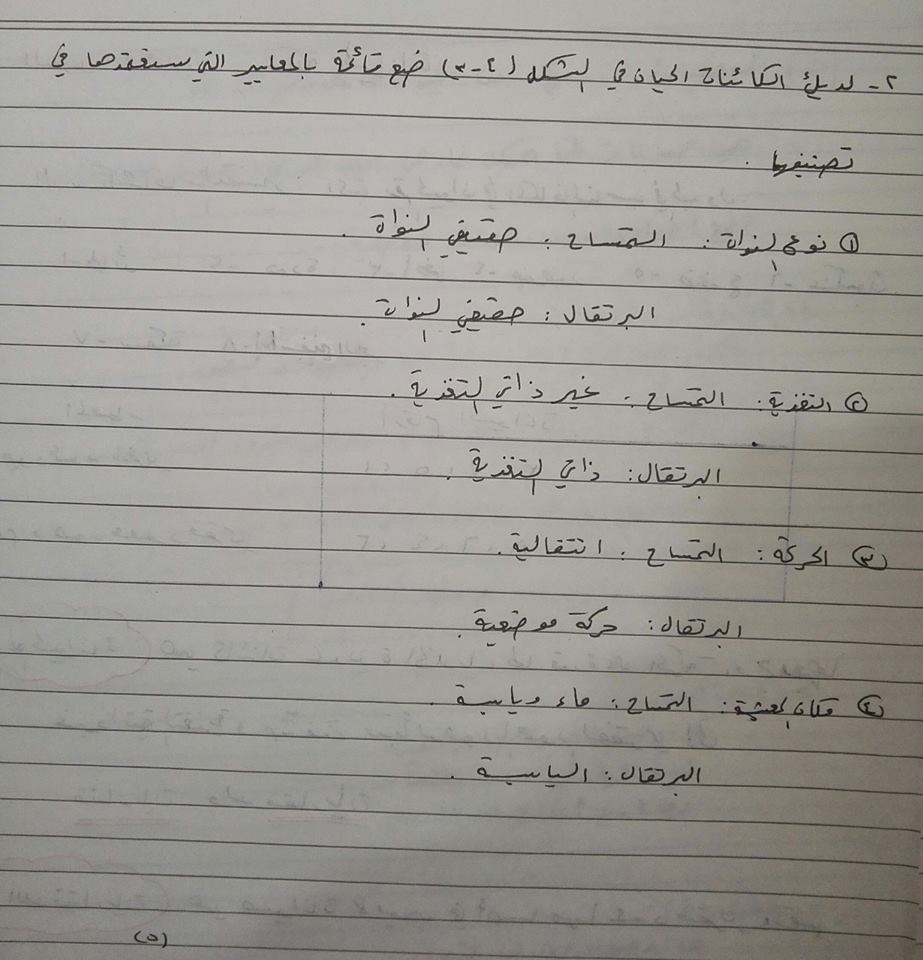 ٢- لديك الكائنات الحيان في الشكل (٢-٣) ضع قائمة بالمعايير التي ستعتمدها في
تصنيفها .
① نوع النواة : التمساح : حقيقي النواة .
البرتقال : حقيقي النواة .
② التغذية : التمساح : غير ذاتي التغذية .
البرتقال : ذاتي التغذية .
③ الحركة : التمساح : انتقالية .
البرتقال : حركة موضعية .
④ مكان المعيشة : التمساح : ماء ويابسة .
البرتقال : اليابسة .
(٥)